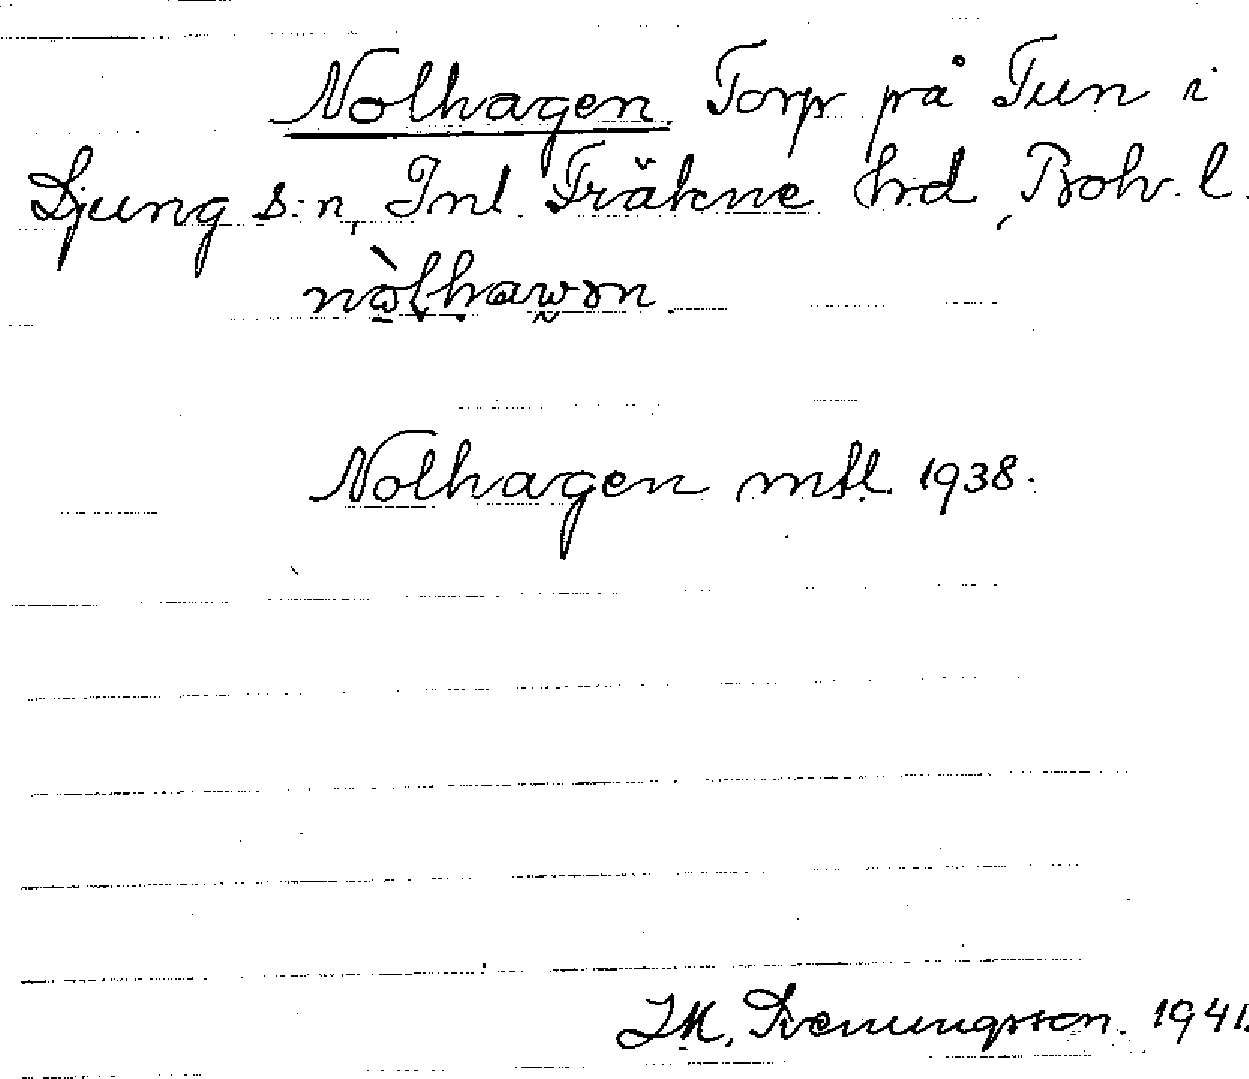 Nolhagen Torp på Tun i
Ljung s:n, Inl. Fräkne hrd, Boh. l.
nolhawən
Nolhagen mtl 1938.
1941.